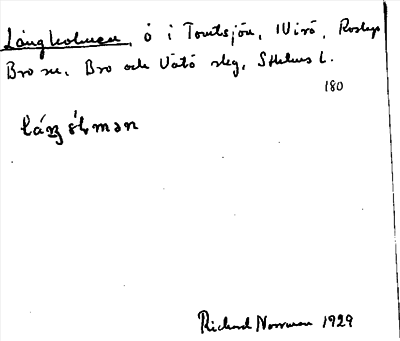 Långholmen, ö i Tomtsjön, 1 Virö, Roslags
Bro sn, Bro och Vätö skg, Sthlms L.
180
Richard Norrman 1929